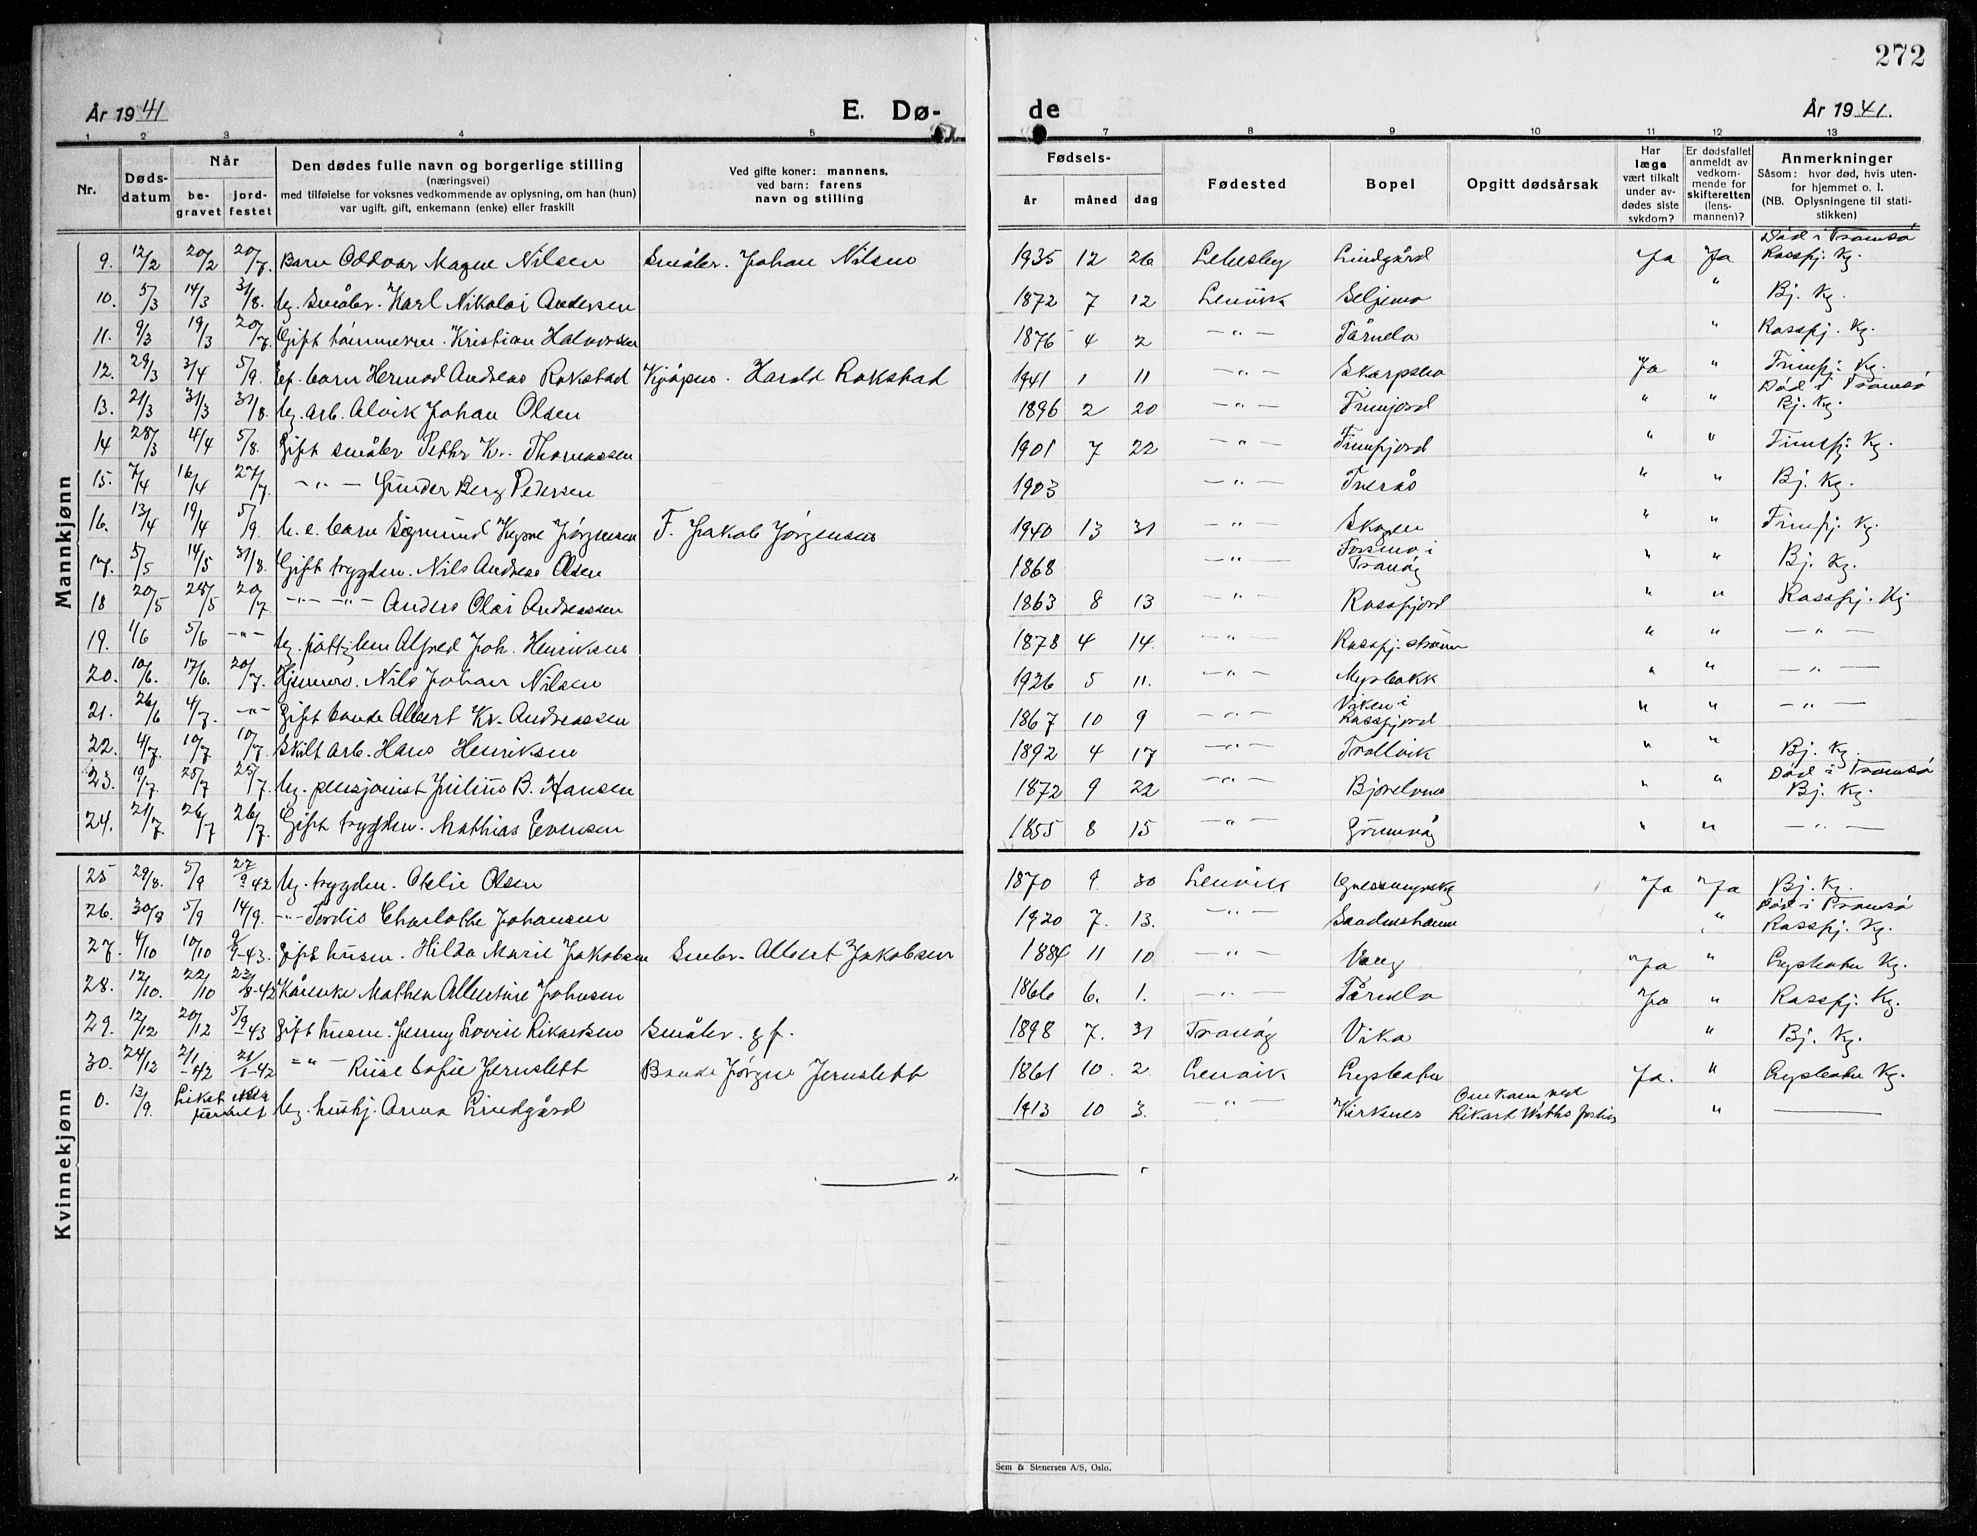 272
År 1941
E. Dø-
de
År 1941.
1 2 3 4 5 7 8 9 10 11 12 13
Nr.
Døds-
datum
Når
be-
gravet
jord-
festet
Den dødes fulle navn og borgerlige stilling
(næringsvei)
med tilføielse for voksnes vedkommende av oplysning, om han (hun)
var ugift, gift, enkemann (enke) eller fraskilt
Ved gifte koner: mannens,
ved barn: farens
navn og stilling
Fødsels-
år måned dag
Fødested
Bopel
Opgitt dødsårsak
Har
læge
vært tilkalt
under av-
dødes siste
sykdom?
Er dødsfallet
anmeldt av
vedkom-
mende for
skifteretten
(lens-
mannen)?
Anmerkninger
Såsom: hvor død, hvis uten-
for hjemmet o. l.
(NB. Oplysningene til stati-
stikken)
Mannkjønn
9. 12/2 20/2 20/7. Barn Oddvar Magne Nilsen Småbr. Johan Nilsen 1935 12 26 Lebesby Lindgård Ja Ja Død i Tromsø Rossfj. Kg.
10. 5/3 14/3 31/8. Ug. Småbr. Karl Nikolai Andersen 1872 7 12 Lenvik Seljemo " Bj. Kg.
11. 9/3 19/3 20/7. Gift tømmerm. Kristian Halvorsen 1876 4 2 -"- Tårnelv " Rossfj. Kg.
12. 29/3 3/4 5/9. barn Hermod Andreas Rokstad Kjøpm. Harald Rokstad 1941 1 11 -"- Ja " Finnfj. Kg.
13. 21/3 31/3 31/8. Ug. arb. Alvik Johan Olsen 1896 2 20 -"- Finnfjord " " Død i Tromsø Bj. Kg.
14 28/3 4/4 5/8. Gift småbr Petter Kr. Thomassen 1901 7 22 -"- Finnfjord " " Finnfj. Kg.
15. 7/4 16/4 27/7. -"- Gunder Berg Pedersen 1903 -"- Tverås " " Bj. Kg.
16. 13/4 19/4 5/9. U. e. barn Sigmund Jørgensen F. Jakob Jørgensen 1940 13 31 -"- Skogen " " Finnfj. Kg.
17. 5/5 14/5 31/8. Gift trygden. Nils Andreas Olsen 1868 -"- Forsmo i Tranøy " " Bj. Kg.
18 20/5 28/5 20/7 -"- -"- Anders Olai Andreassen 1863 8 13 -"- Rossfjord " " Rossfj. Kg
19. 1/6 5/6 -"- Ug. fattiglem Alfred Joh. Henriksen 1878 4 14. -"- Rossfj. strømen " " -"-
20. 10/6. 17/6. 20/7. Hjemmev. Nils Johan Nilsen 1926 5 11. -"- Myrbakk " " -"-
21. 26/6 4/7. -"- Gift bonde Albert Kr. Andreassen 1867 10 9 -"- Viken i Rossfjord " " -"-
22. 4/7. 10/7 10/7. Skilt arb. Hans Henriksen 1892 4 17 -"- Trollvik " " Bj. Kg.
23. 19/7. 25/7 25/7. Ug. pensjonist Julius B. Hansen 1872 9 22 -"- Bjorelvnes " " Død i Tromsø Bj. Kg.
24. 21/7. 26/7 26/7. Gift trygden. Mathias Evensen 1855 8 15 -"- Grunvåg " " -"-
Kvinnekjønn
25 29/8. 5/9 27/9 42 Ug. trygden. Otelie Olsen 1870 9. 30 Lenvik Ja Ja Bj. Kg.
26. 30/8 5/9 14/9. -"- Tordis Charlotte Johansen 1920 7. 13. -"- " Død i Tromsø Rossfj. Kg.
27. 4/10 10/10 9/9-43. Gift husm. Hilda Marie Jakobsen Småbr. Albert Jakobsen 1884 11 10 -"- Vang Ja " Gysbotn Kg.
28. 12/10. 22/10 23/8-42 Kårenke Mathea Albertine Johnsen 1866 6. 1. -"- Tårnelv Ja " Rossfj. Kg.
29. 12/12 20/12 5/9-43 Gift husm. Jenny Lovise Rikardsen Småbr. g f. 1898 7. 31 Tranøy Vika " Bj. Kg.
30. 24/12 2/1-42 21/1-42 -"- Sofie Jernslett Bonde Jørgen Jernslett 1861 10. 2 Lenvik Gysbotn Ja. " Gysbotn Kg.
0. 13/9. Liket ikke funnet Ug. hushj. Anna Lindgård 1913 10 3. -"- Kirknes Omkom ved Rikard Withs forlis "
Sem & Stenersen A/S, Oslo.